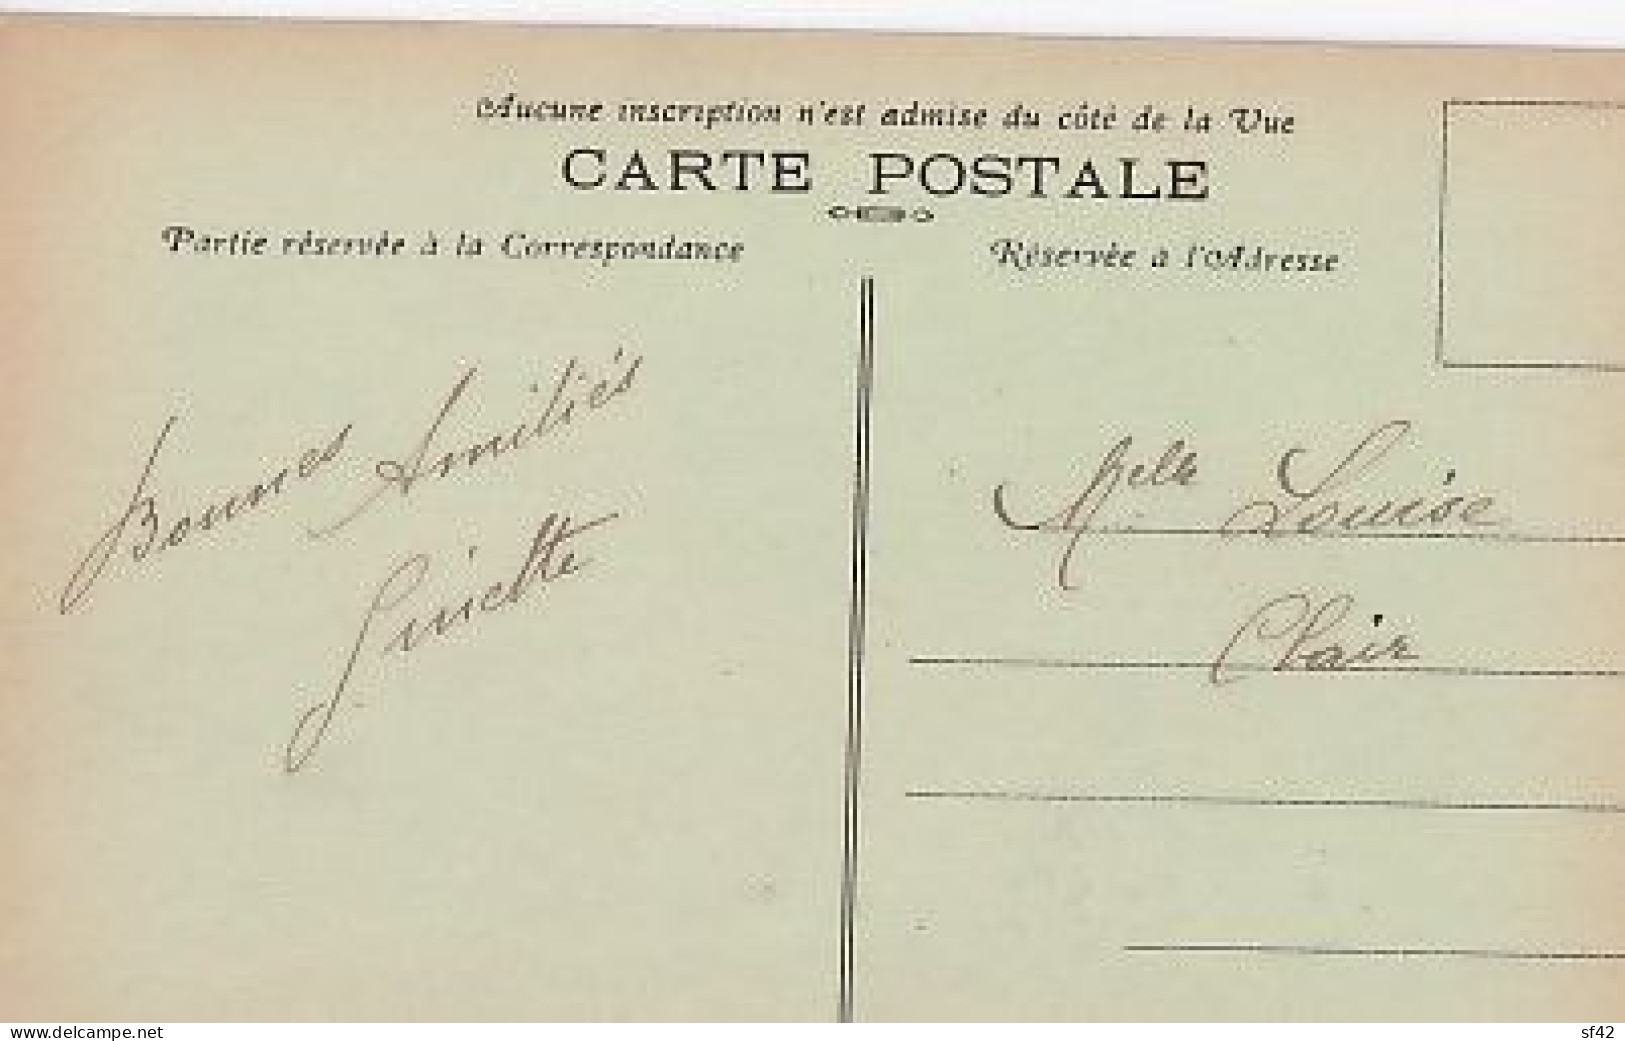 Aucune inscription n'est admise du côté de la Vue
CARTE POSTALE
Partie réservée à la Correspondance
Réservée à l'Adresse
Bonnes Amitiés
Ginette
Melle Louise
Clair
www.delcampe.net
sf42